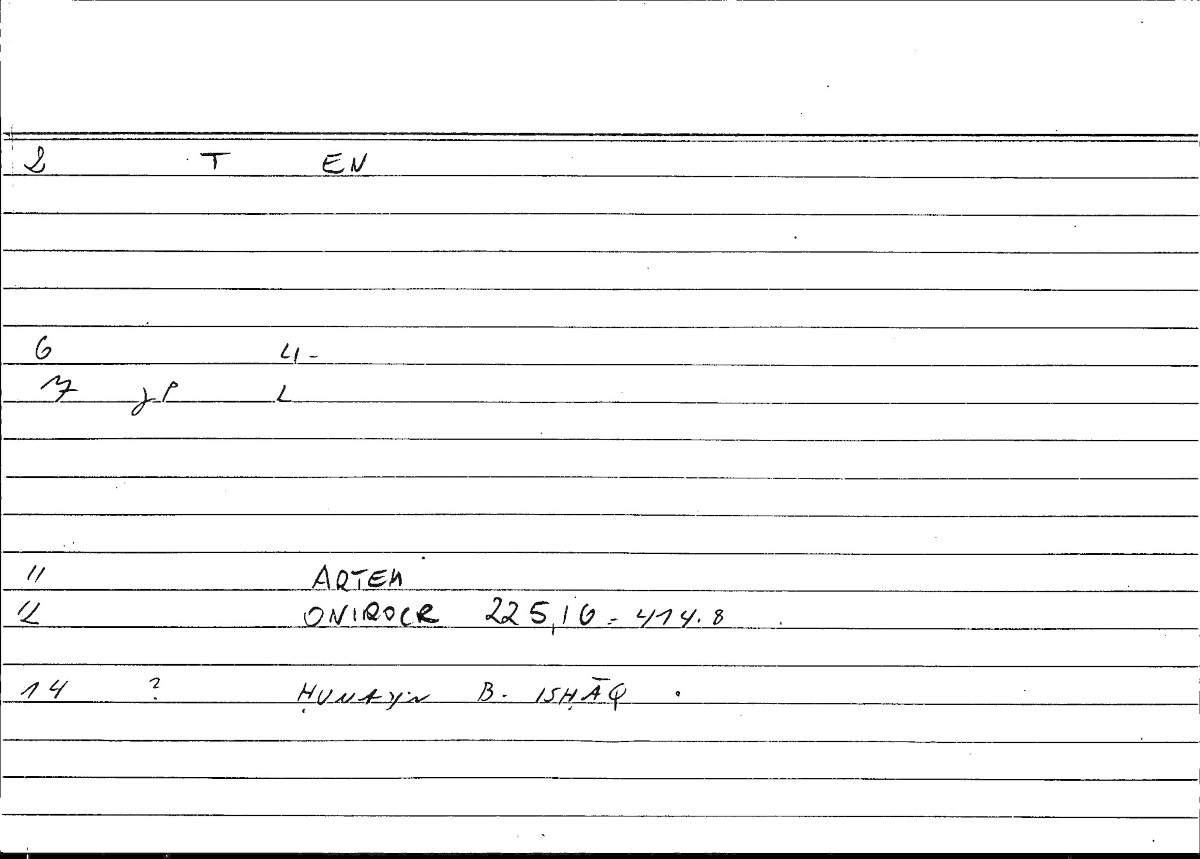 2 T EN
6 4-
7 gP L
11 ARTEM
12 ONIROCR 225,10 = 414.8
14 ? ḤUNAYN B. ISḤĀQ .